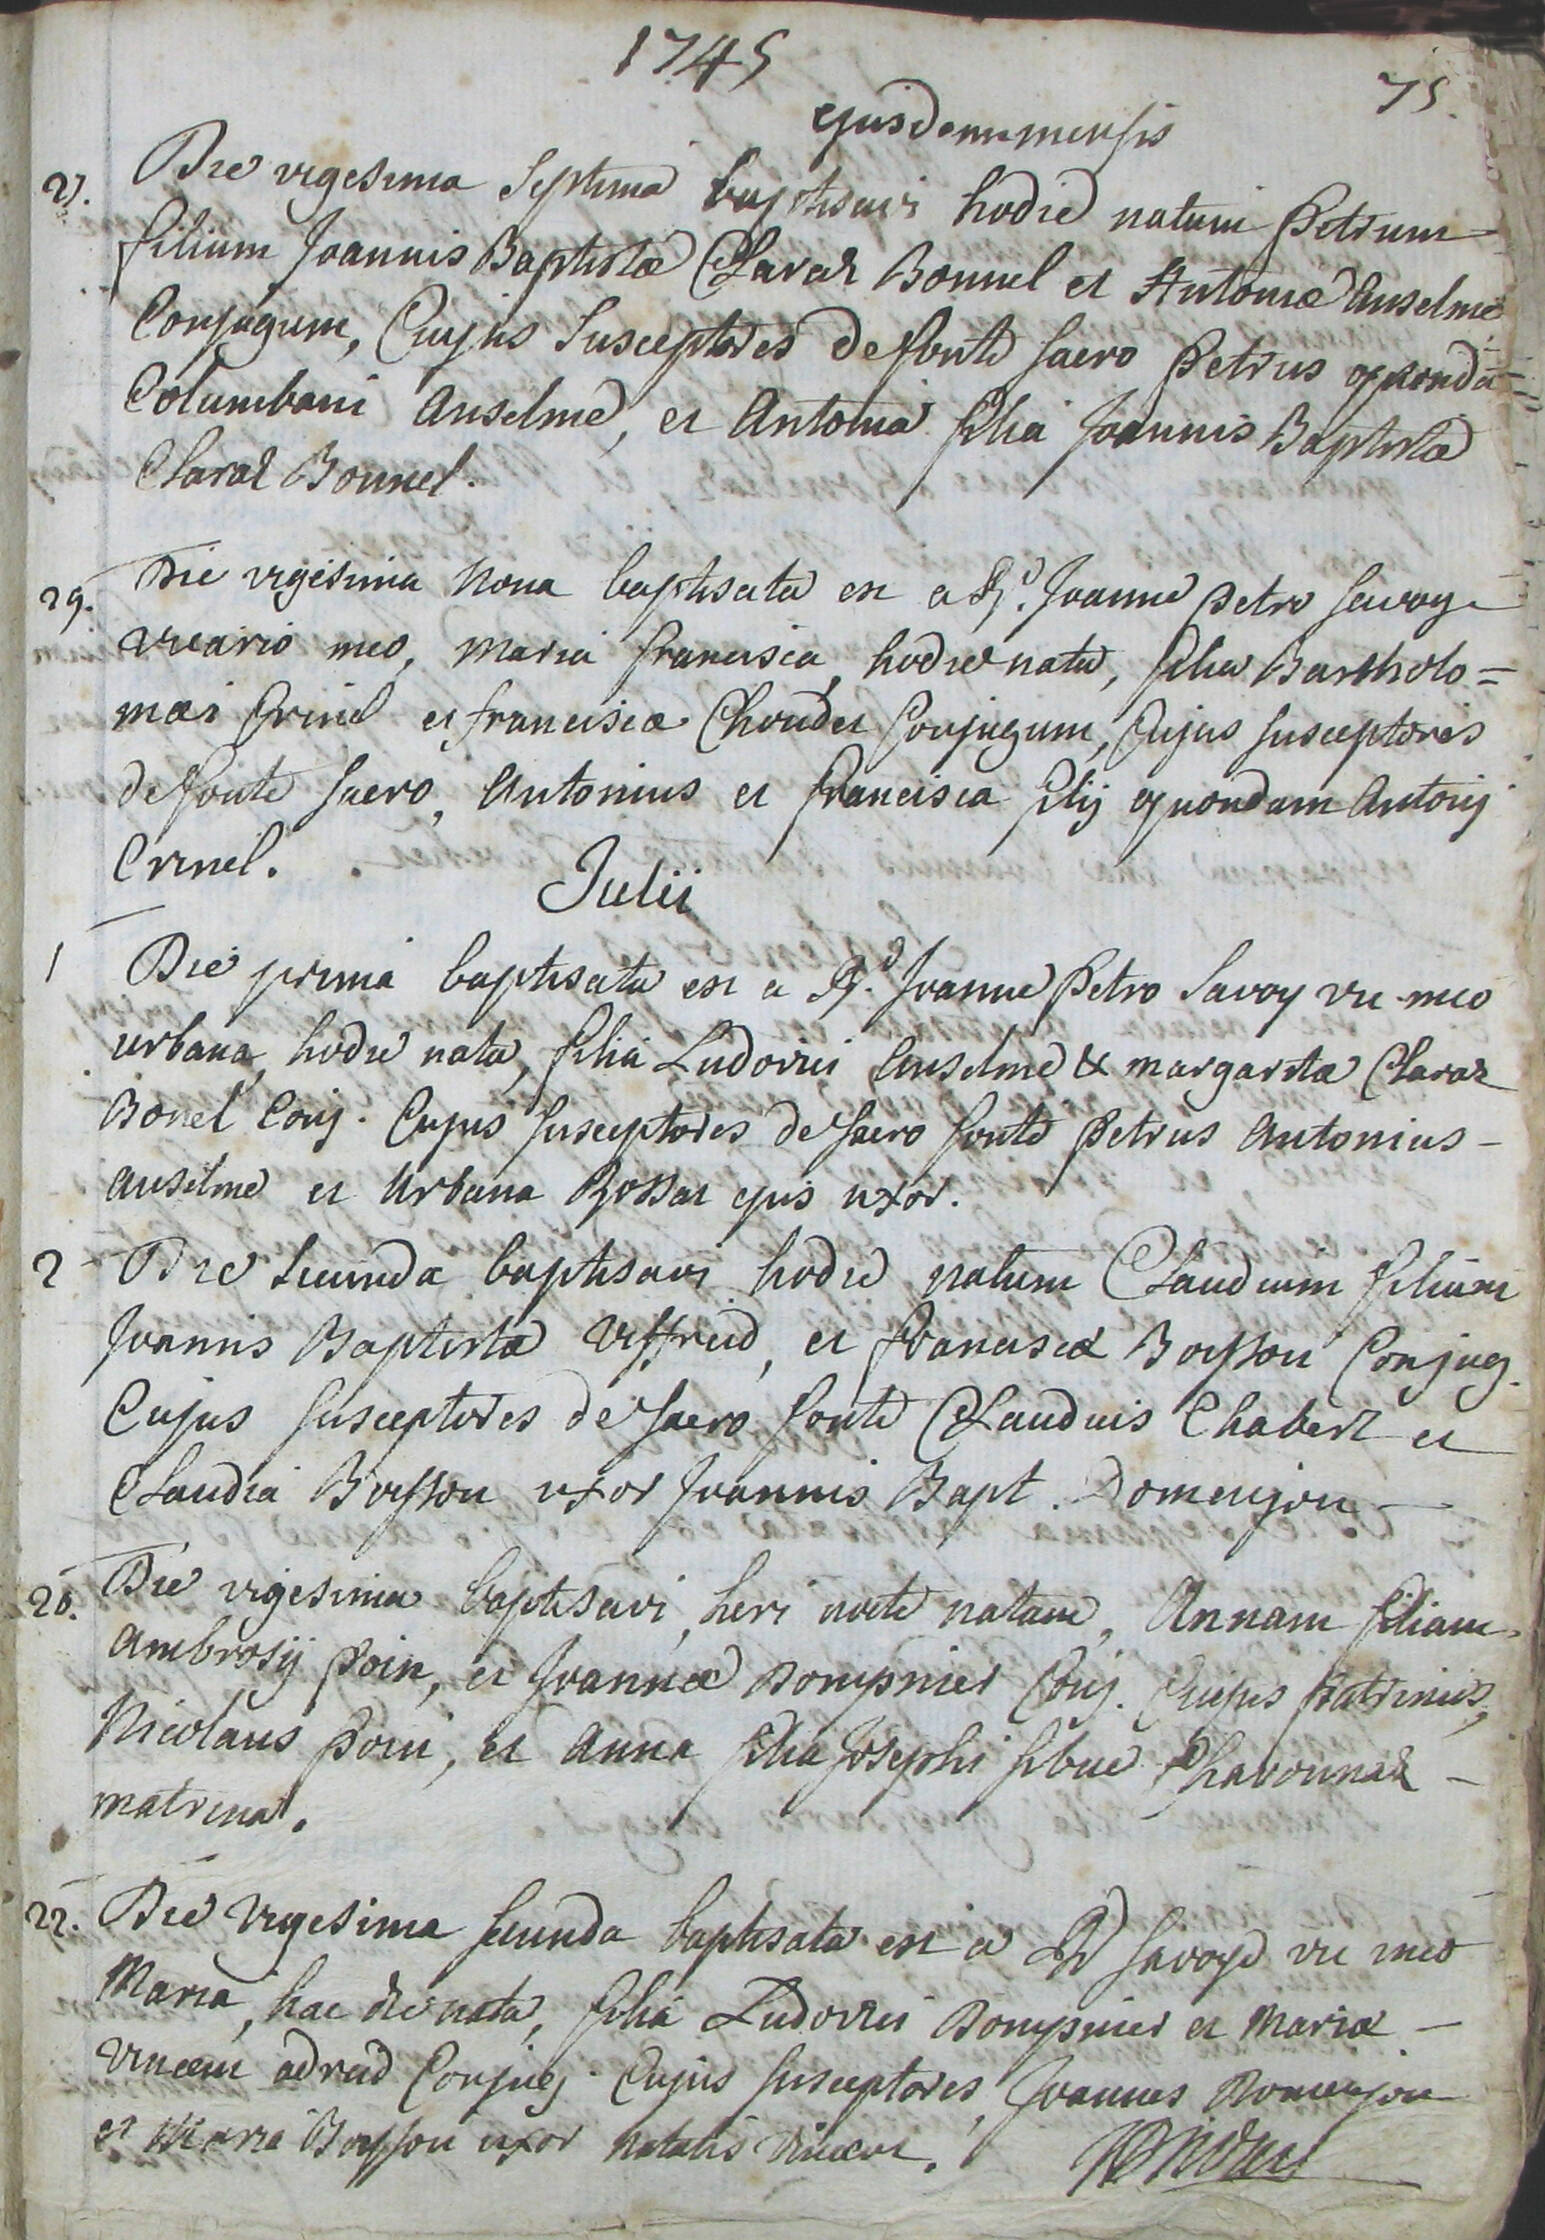 1745
75.
ejusdem mensis
27. Die vigesima Septima baptisavi hodie natum Petrum
filium Joannis Baptistæ Claraz Bonnel et Antoniæ Anselme
Conjugum, Cujus Susceptores de fonte sacro Petrus quondã
Columbani Anselme, et Antonia filia Joannis Baptistæ
Claraz Bonnel.
29. Die vigesima Nona baptisata est a Rd. Joanne Petro Savoye
vicario meo, Maria Francisca, hodie nata, filia Bartholo=
mæi Crinel et franciscæ Choudet Conjugum, Cujus susceptores
de fonte sacro, Antonius et Francisca filij quondam Antonij
Crinel.
Julii
1 Die prima baptisata est a Rd. Joanne Petro Savoy vic meo
urbana, hodie nata, filia Ludovici Anselme & margaritæ Claraz
Bonel Conj. Cujus susceptores de sacro fonte Petrus Antonius
anselme et Urbana Rossat ejus uxor.
2 Die Secunda baptisavi hodie natum Claudium filium
Joannis Baptistæ Viffreid, et Franciscæ Boysson Conjug.
Cujus susceptores de sacro fonte Claudius Chabert et
Claudia Boysson uxor Joannis Bapt. Domenjon
20. Die vigesima baptisavi, heri nocte natam, Annam filiam
Ambrosij Poin, et Joannæ Dompnier Conj. Cujus patrinus,
Nicolaus Poin, et Anna filia Josephi sibue Chavonnaz
matrina.
22. Die Vigesima secunda baptisata est a Rd Savoye vic meo
Maria, hac die nata, filia Ludovici Dompnier et Mariæ
vincen Conjug. Cujus susceptores, Joannes Domenjon
et Maria Boysson uxor Natalis